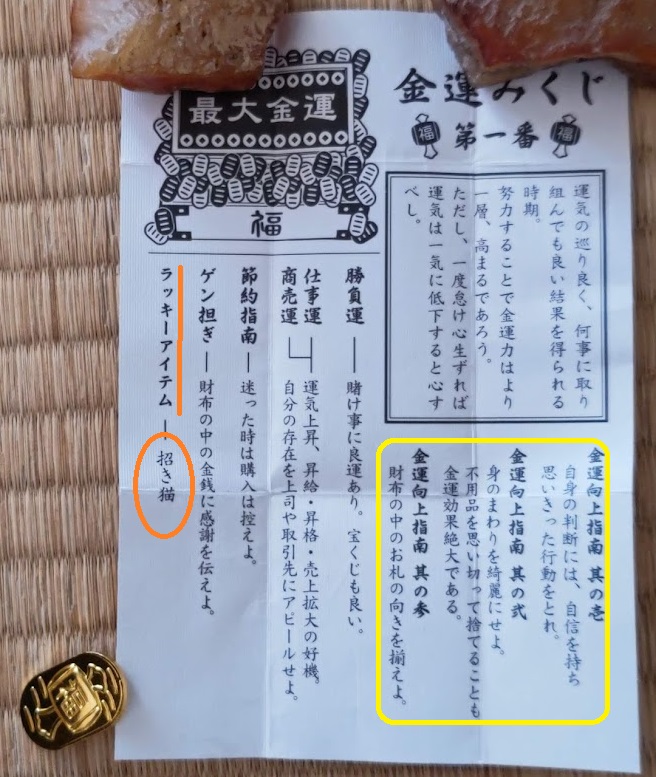 金運みくじ
福
第一番
福
運気の巡り良く、何事に取り
組んでも良い結果を得られる
時期。
努力することで金運力はより
一層、高まるであろう。
ただし、一度怠け心生ずれば
運気は一気に低下すると心す
べし。
金運向上指南 其の壱
自身の判断には、自信を持ち
思いきった行動をとれ。
金運向上指南 其の弐
身のまわりを綺麗にせよ。
不用品を思い切って捨てることも
金運効果絶大である。
金運向上指南 其の参
財布の中のお札の向きを揃えよ。
最大金運
福
勝負運
賭け事に良運あり。宝くじも良い。
仕事運
商売運
運気上昇、昇給・昇格・売上拡大の好機。
自分の存在を上司や取引先にアピールせよ。
節約指南
迷った時は購入は控えよ。
ゲン担ぎ
財布の中の金銭に感謝を伝えよ。
ラッキーアイテム
招き猫